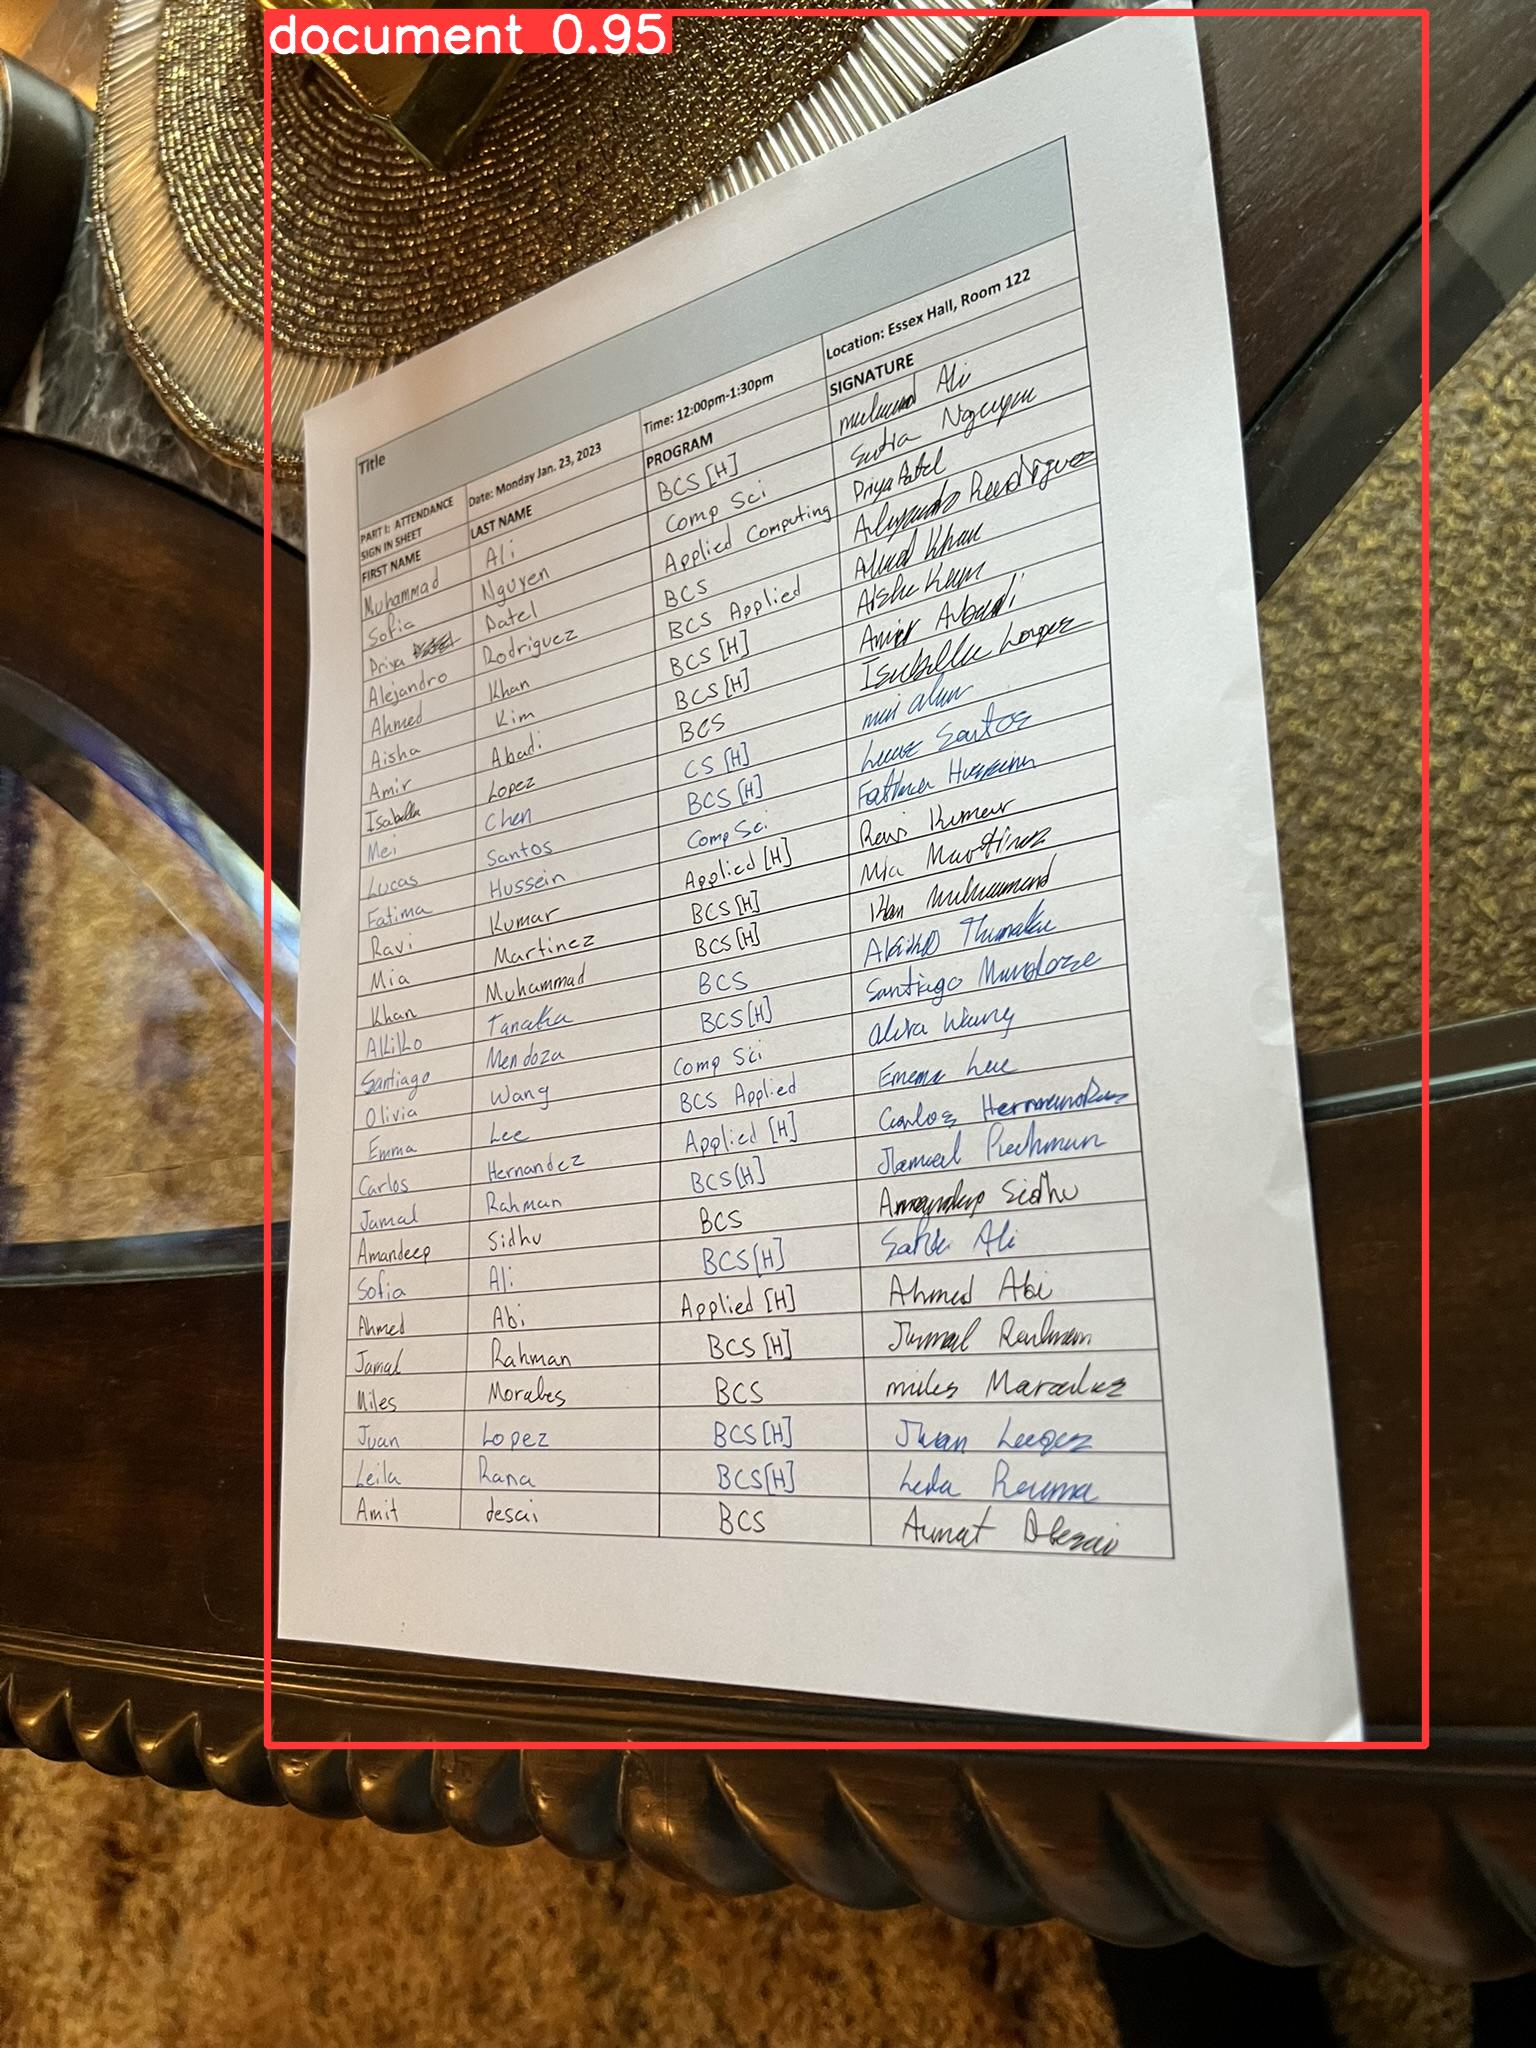 document 0.95
Title
PART I: ATTENDANCE SIGN IN SHEET Date: Monday Jan. 23, 2023 Time: 12:00pm-1:30pm Location: Essex Hall, Room 122
FIRST NAME LAST NAME PROGRAM SIGNATURE
Muhammad Ali BCS [H] Ali
Sofia Nguyen Comp Sci Nguyen
Priya Patel Applied Computing Priya Patel
Alejandro Rodriguez BCS Alejandro Rodriguez
Ahmed Khan BCS Applied Khan
Aisha Kim BCS [H]
Amir Abadi BCS [H] Amir Abadi
Isabella Lopez BCS Isabella Lopez
Mei Chen CS [H]
Lucas Santos BCS [H] Lucas Santos
Fatima Hussein Comp Sci Fatima Hussein
Ravi Kumar Applied [H] Ravi Kumar
Mia Martinez BCS [H] Mia Martinez
Khan Muhammad BCS [H]
Akiko Tanaka BCS
Santiago Mendoza BCS [H] Santiago
Olivia Wang Comp Sci Wang
Emma Lee BCS Applied Emma Lee
Carlos Hernandez Applied [H] Carlos
Jamal Rahman BCS [H]
Amandeep Sidhu BCS Amandeep Sidhu
Sofia Ali BCS [H] Ali
Ahmed Abi Applied [H] Ahmed Abi
Jamal Rahman BCS [H]
Miles Morales BCS miles
Juan Lopez BCS [H] Juan
Leila Rana BCS [H]
Amit desai BCS